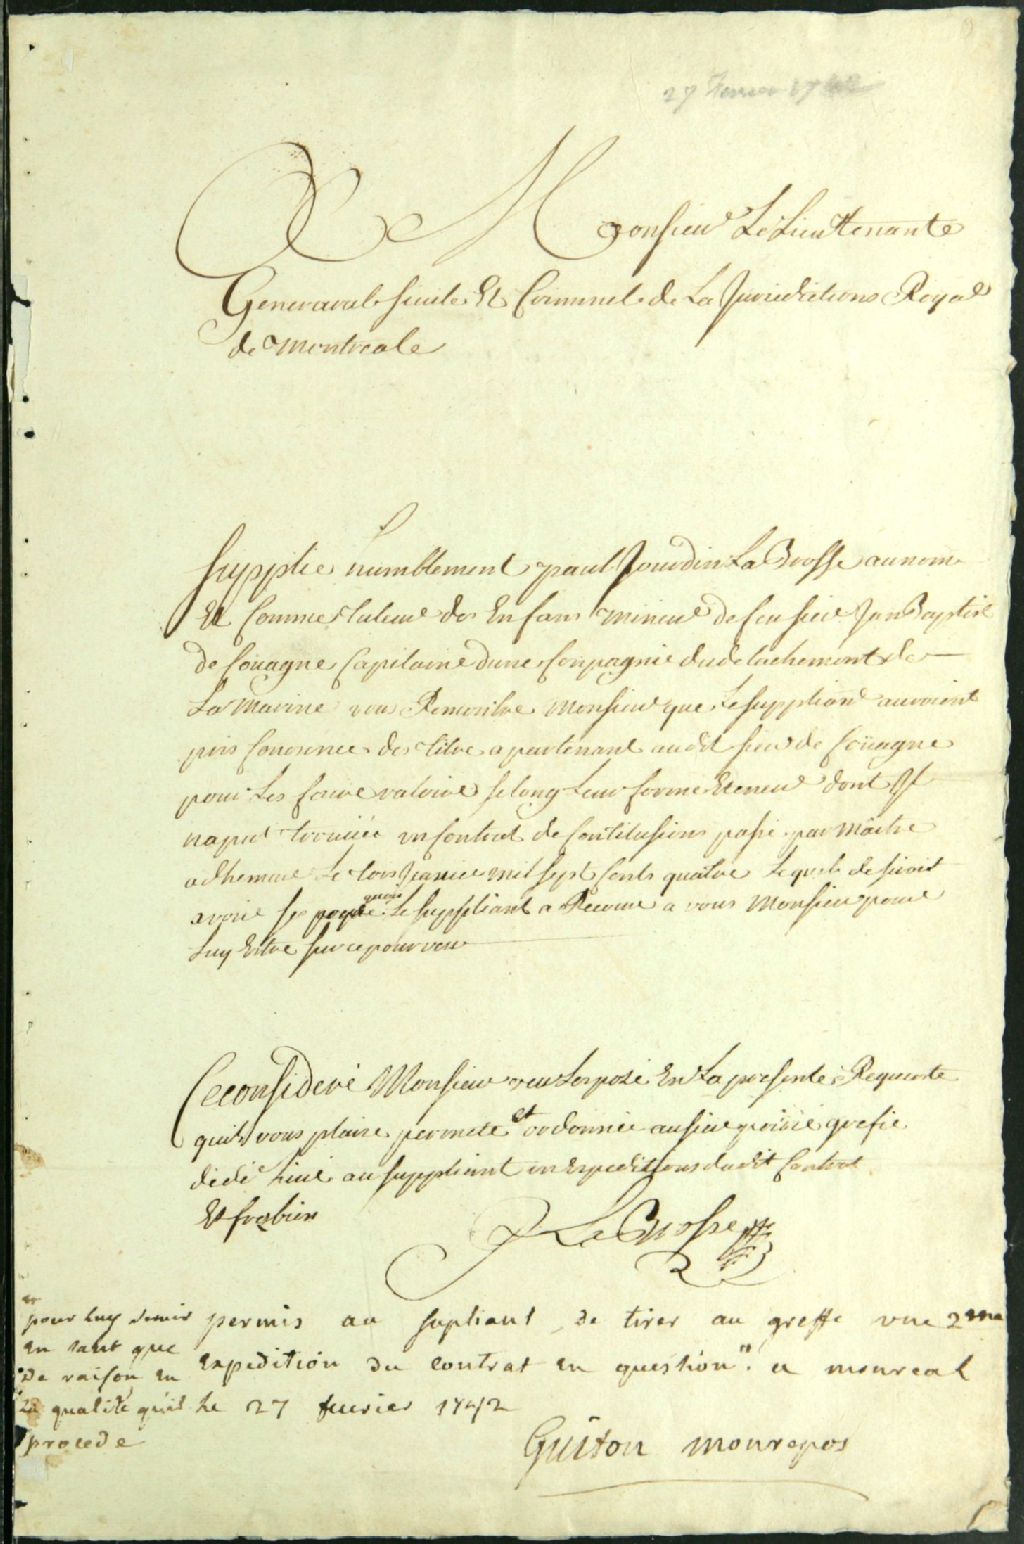 27 fevrier 1742
A Monsieur Le Lieuttenante
Generaral sivile Et Criminel de La Jurisdictions Royal
de Montreale
Supplie humblement paul Jourdin La Brosse au nom
Et Comme tuteur des Enfans mineur de feu sieur Jan Baptist
de Coüagne Capitaine dune Conpagnie du detachement de
La Marine vou Remontre Monsieur que Le suppliant auroient
pris Connence des titre apartenant audit sieur de Coüagne
pour Les faire valoire selong Leur forme Eteneur dont Il
na put trouuée un Contrat de Contitusions passé par Maitre
adhemare Le Janvier mil sept Cents quattre Lequel desirois
avoir quoy Le suppliant a Recoure a vous Monsieur pour
Luy Estre sur ce pourveu
Ce considéré Monsieur veu Lexposé En La presente Requeste
quil vous plaise permete et ordonnée au sieur grefie
de dé livré au suppliant un Expeditions dudit Contrat
Et fré bien
P La Brosse
permis au supliant de tirer au greffe une 2me
Expedition du contrat en question". a monreal
Le 27 fevrier 1742
"pour luy servir
en tant que
de raison en
La qualité quil
procede
Guiton monrepos